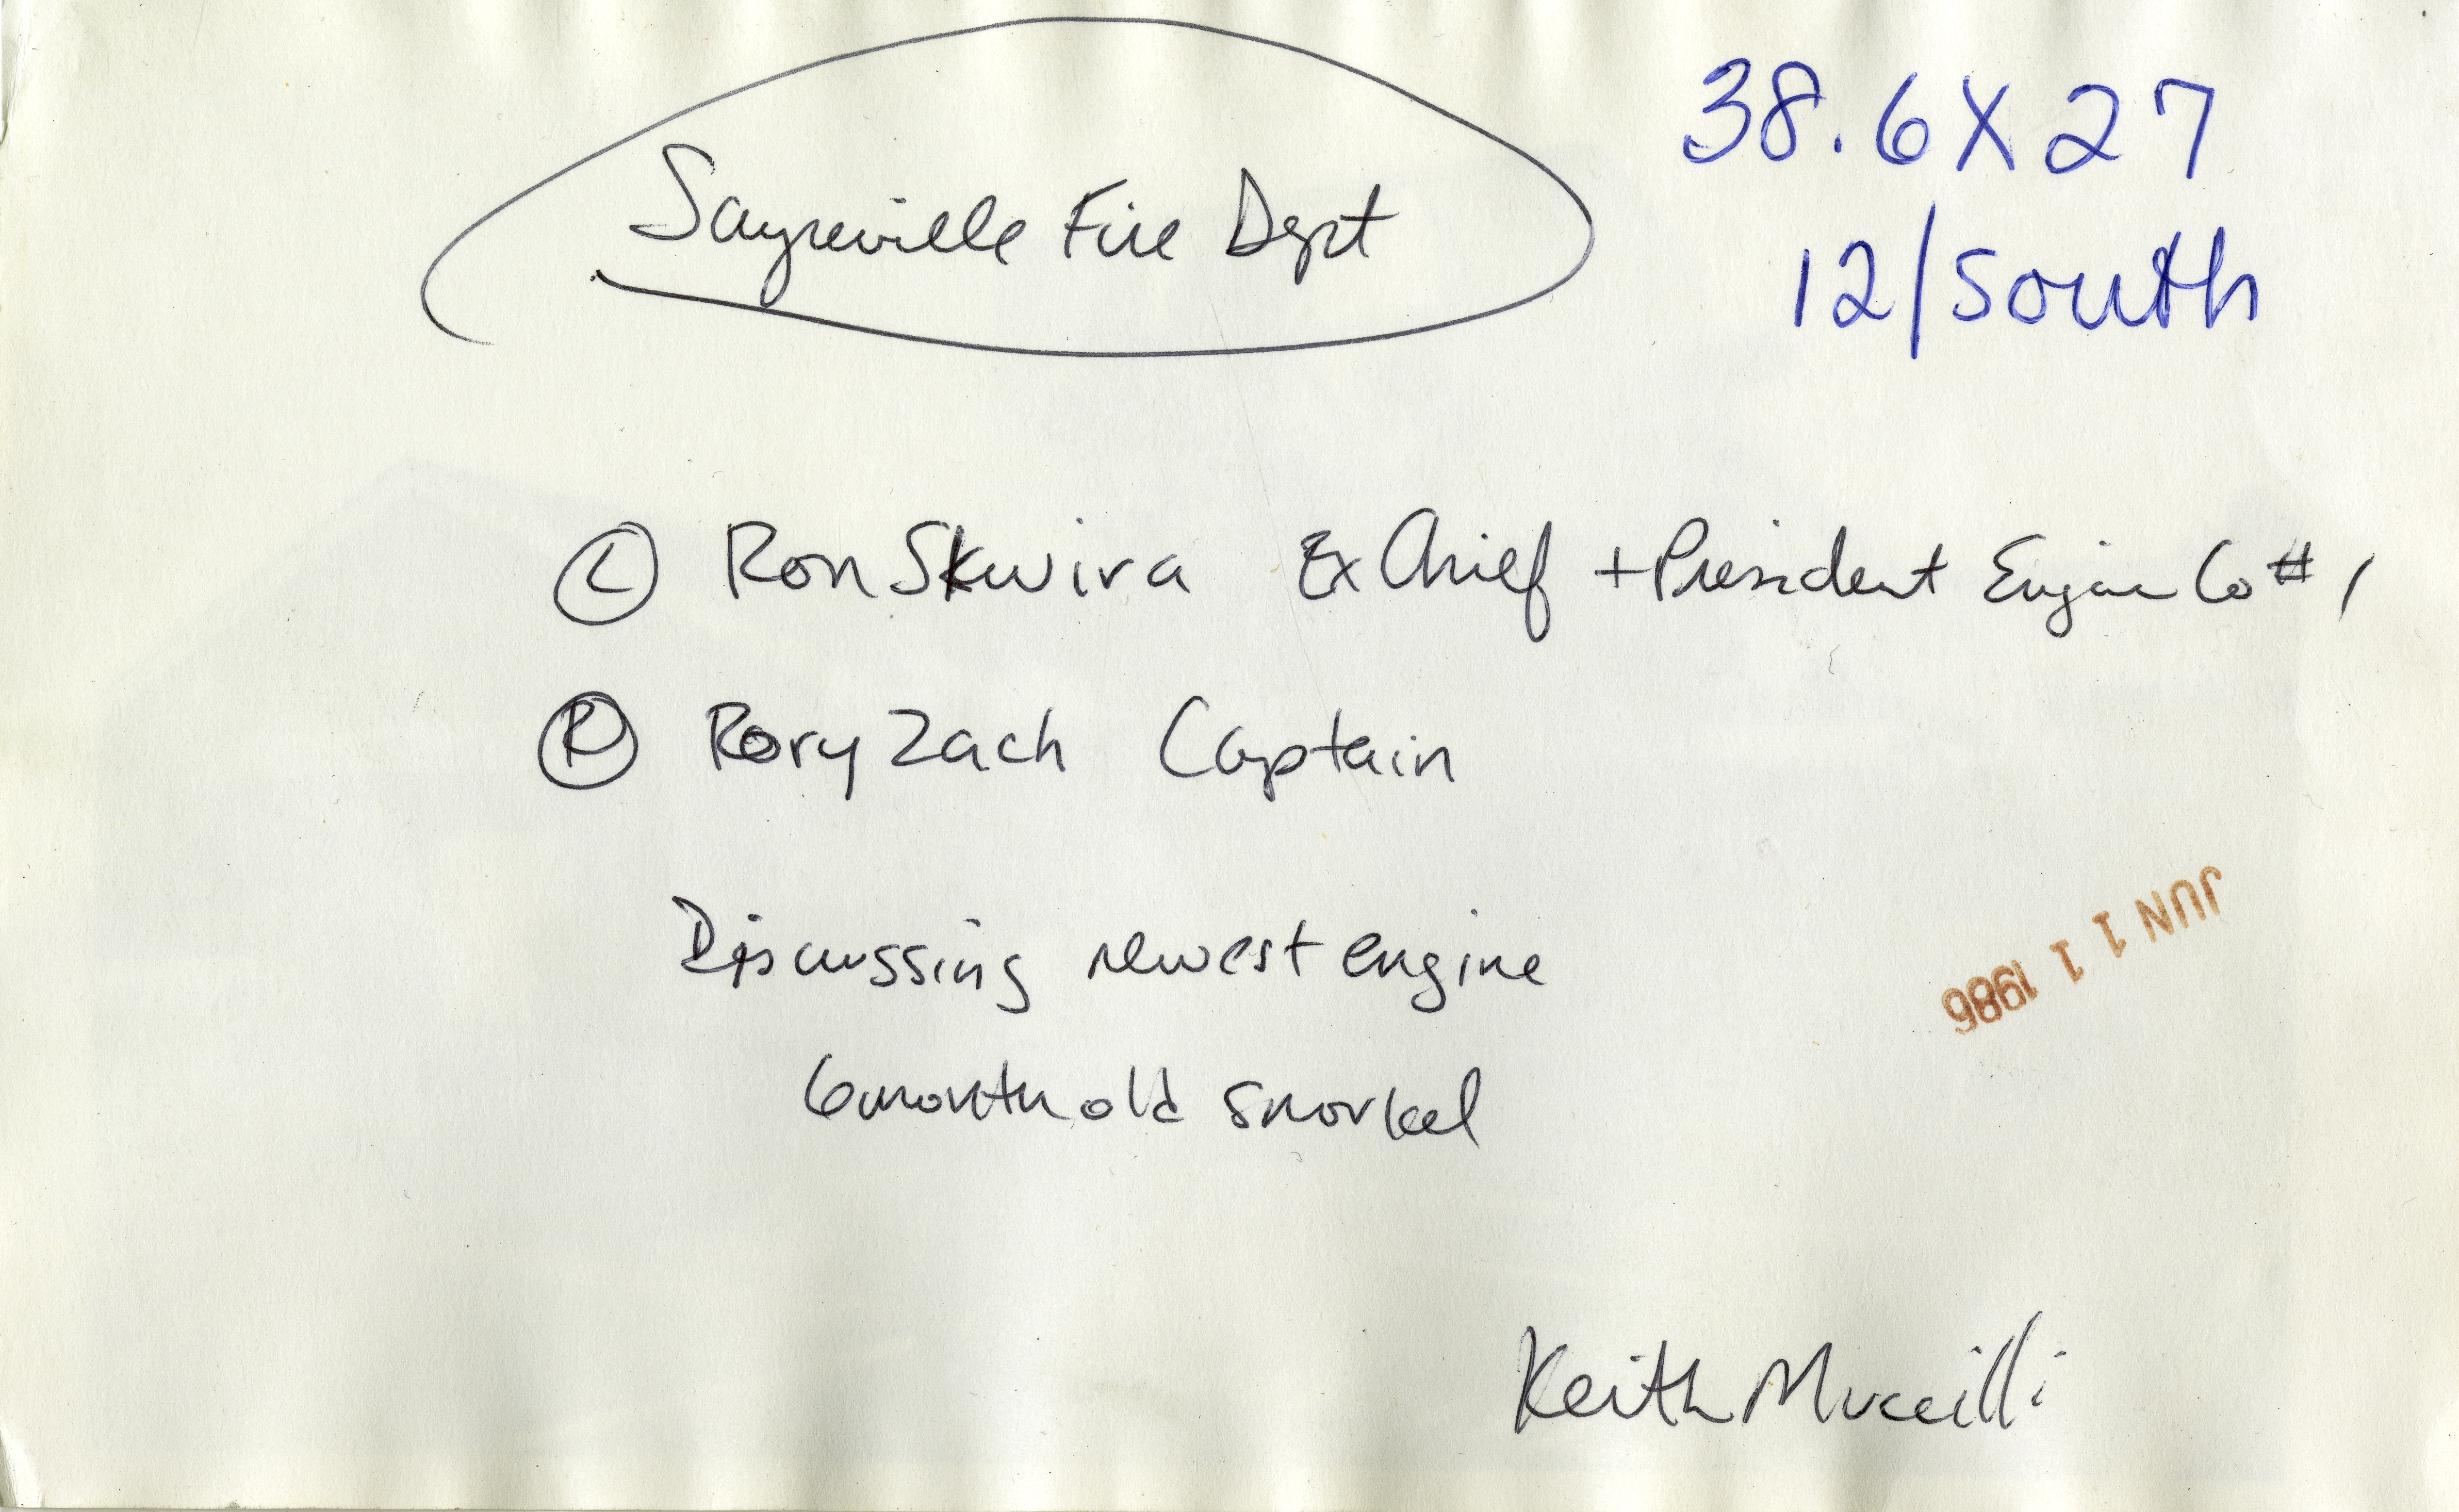 38.6 X 27
Sayreville Fire Dept
12/South
L Ron Skwira Ex Chief + President Engine Co # 1
R Rory Zach Captain
Discussing newest engine
6 month old snorkel
JUN 11 1986
Keith Muccilli